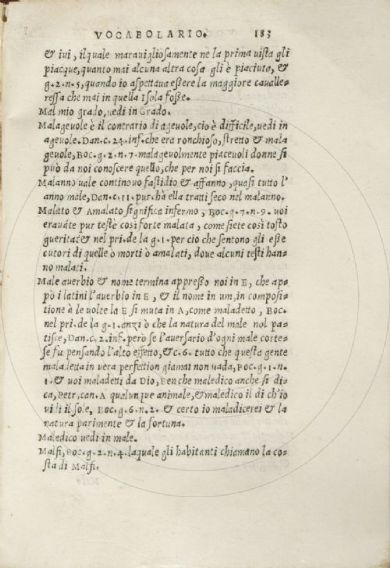 VOCABOLARIO. 183
& iui, il quale marauigliosamente ne la prima uista gli
piacque, quanto mai alcuna altra cosa gli è piaciuta, &
g.2.n.5. quando io aspettaua essere la maggiore caualle-
ressa che mai in quella Isola fosse.
Mal mio grado, uedi in Grado.
Malageuole è il contrario di ageuole, cio è difficile, uedi in
ageuole. Dan.c.24.inf. che era ronchioso, stretto & mala
geuole, Boc.g.2.n.7. malageuolmente piaceuoli donne si
può da noi conoscere quello, che per noi si faccia.
Malanno uale continouo fastidio & affanno, quasi tutto l'
anno male, Dan.c.11.pur. hà ella tratti seco nel malanno.
Malato & Amalato significa infermo, Boc.g.7.n.9. uoi
erauate pur testè così forte malata, come siete così tosto
guerita & nel pri. de la g.1. per cio che sentono gli esse
cutori di quelle ò morti ò amalati, doue alcuni testi han-
no malati.
Male auerbio & nome termina appresso noi in E, che ap-
pò i latini l'auerbio in E, & il nome in um, in composi-
tione è le uolte la E si muta in A, come maladetto, Boc.
nel pri. de la g.1. anzi ò che la natura del male nol pa-
tisse, Dan.c.2.inf. però se l'auersario d'ogni male corte-
se fu pensando l'alto effetto, & c.6. tutto che questa gente
maladetta in uera perfettion giamai non uada, Boc.g.1.n.
1. & uoi maladetti da Dio, Benche maledico anche si di-
ca, Petr.can.A qualunque animale, & maledico il dì ch'io
vidi il sole, Boc.g.6.n.2. & certo io maladicerei & la
natura parimente & la fortuna.
Maledico uedi in male.
Malfi, Boc.g.2.n.4. laquale gli habitanti chiamano la co-
sta di Malfi.